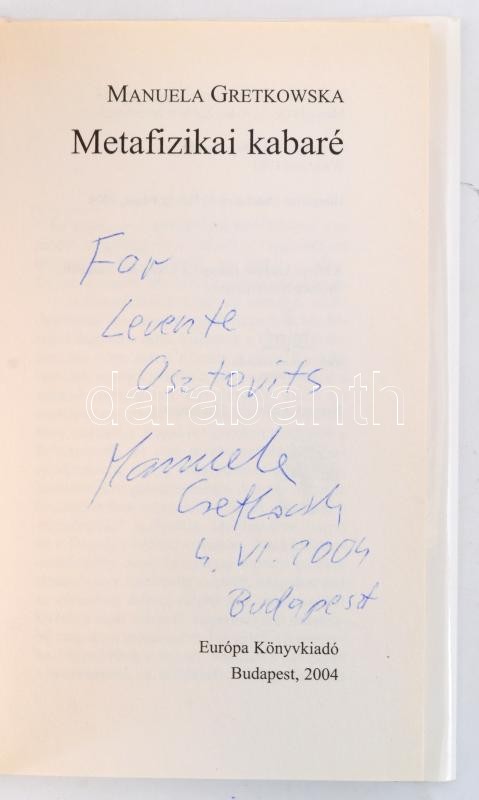 MANUELA GRETKOWSKA
Metafizikai kabaré
For
Levente
Osztovits
darabanth
Manuela
Gretkowsk
4. VI. 2004
Budapest
Európa Könyvkiadó
Budapest, 2004